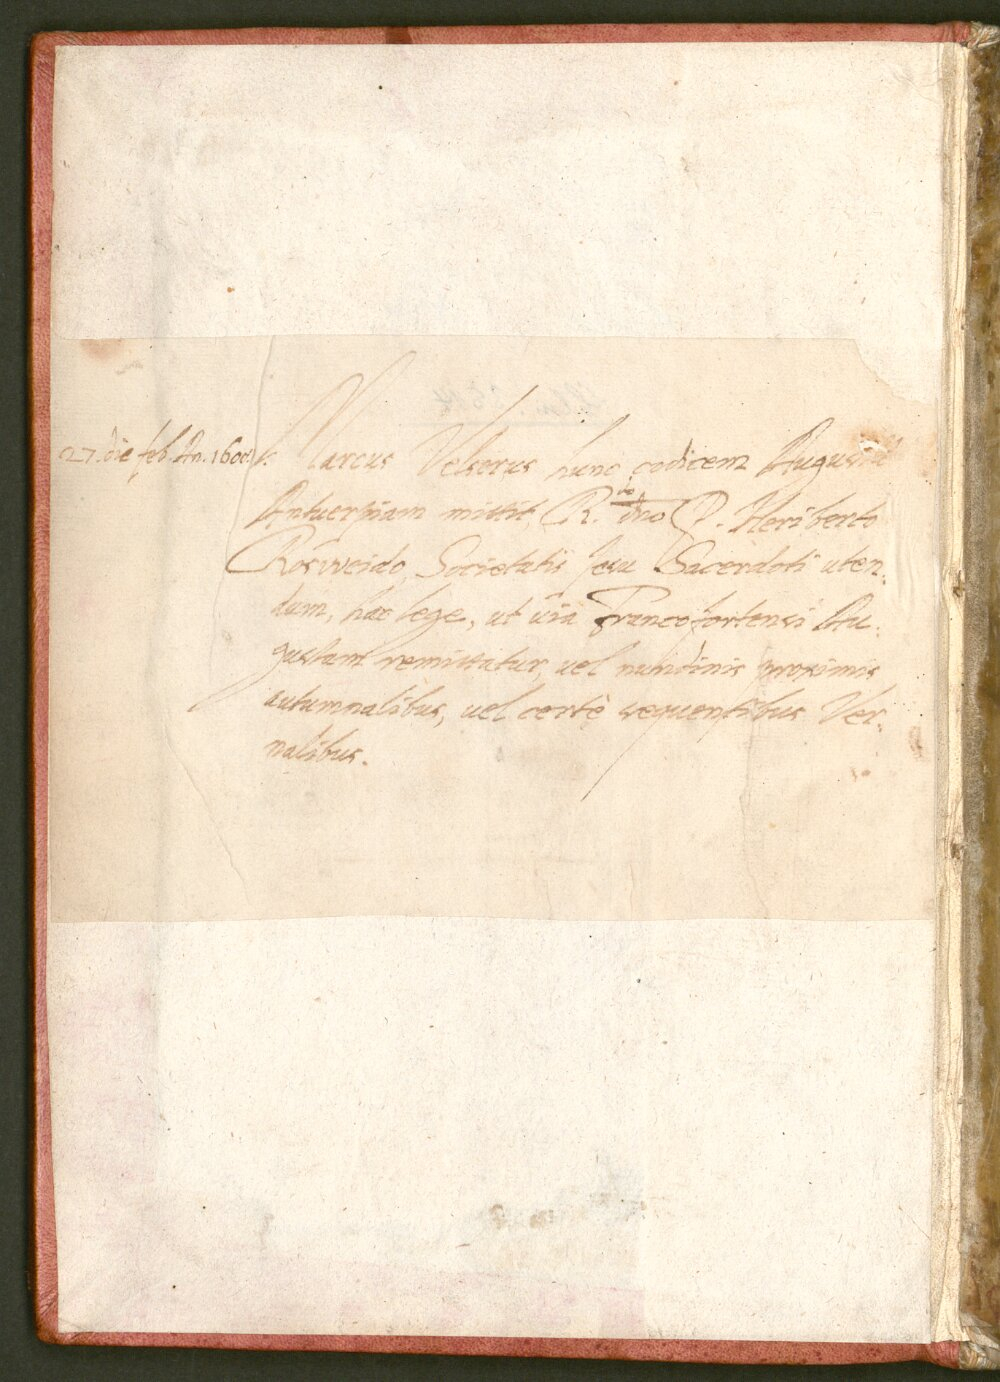 27. die feb. An. 1600. Marcus Velserus hunc codicem Augusta
Antuerpiam mittit, R.do Dno P. Heriberto
Rosweido, Societatis Jesu Sacerdoti uten-
dum, hac lege, ut via Francofortensi Au-
gustam remittatur, vel nundinis proximis
autumnalibus, vel certè sequentibus Ver-
nalibus.